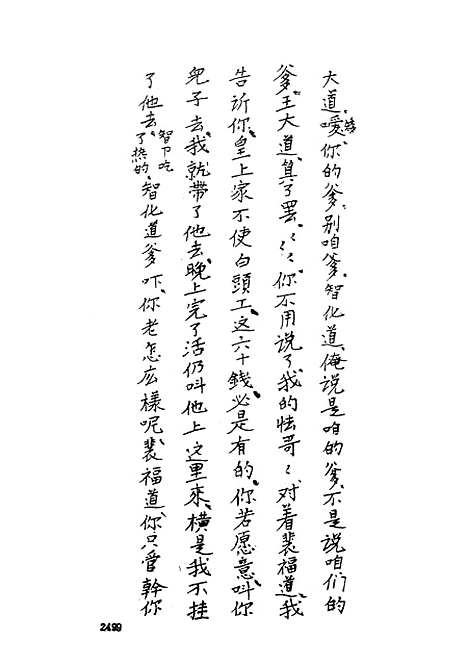 大道、噯、你的爹、别咱爹、智化道、俺说是咱的爹、不是说咱们的
爹、王大道、算了罢、〻〻〻、你不用说了、我的怯哥〻、对着裴福道、我
告訴你、皇上家不使白頭工、这六十錢、必是有的、你若愿意、叫你
兒子去、我就带了他去、晚上完了活仍叫他上这里來、橫是我不挂
了他去、智卩吃了热的、智化道爹吓、你老怎広樣呢、裴福道、你只管幹你
2499